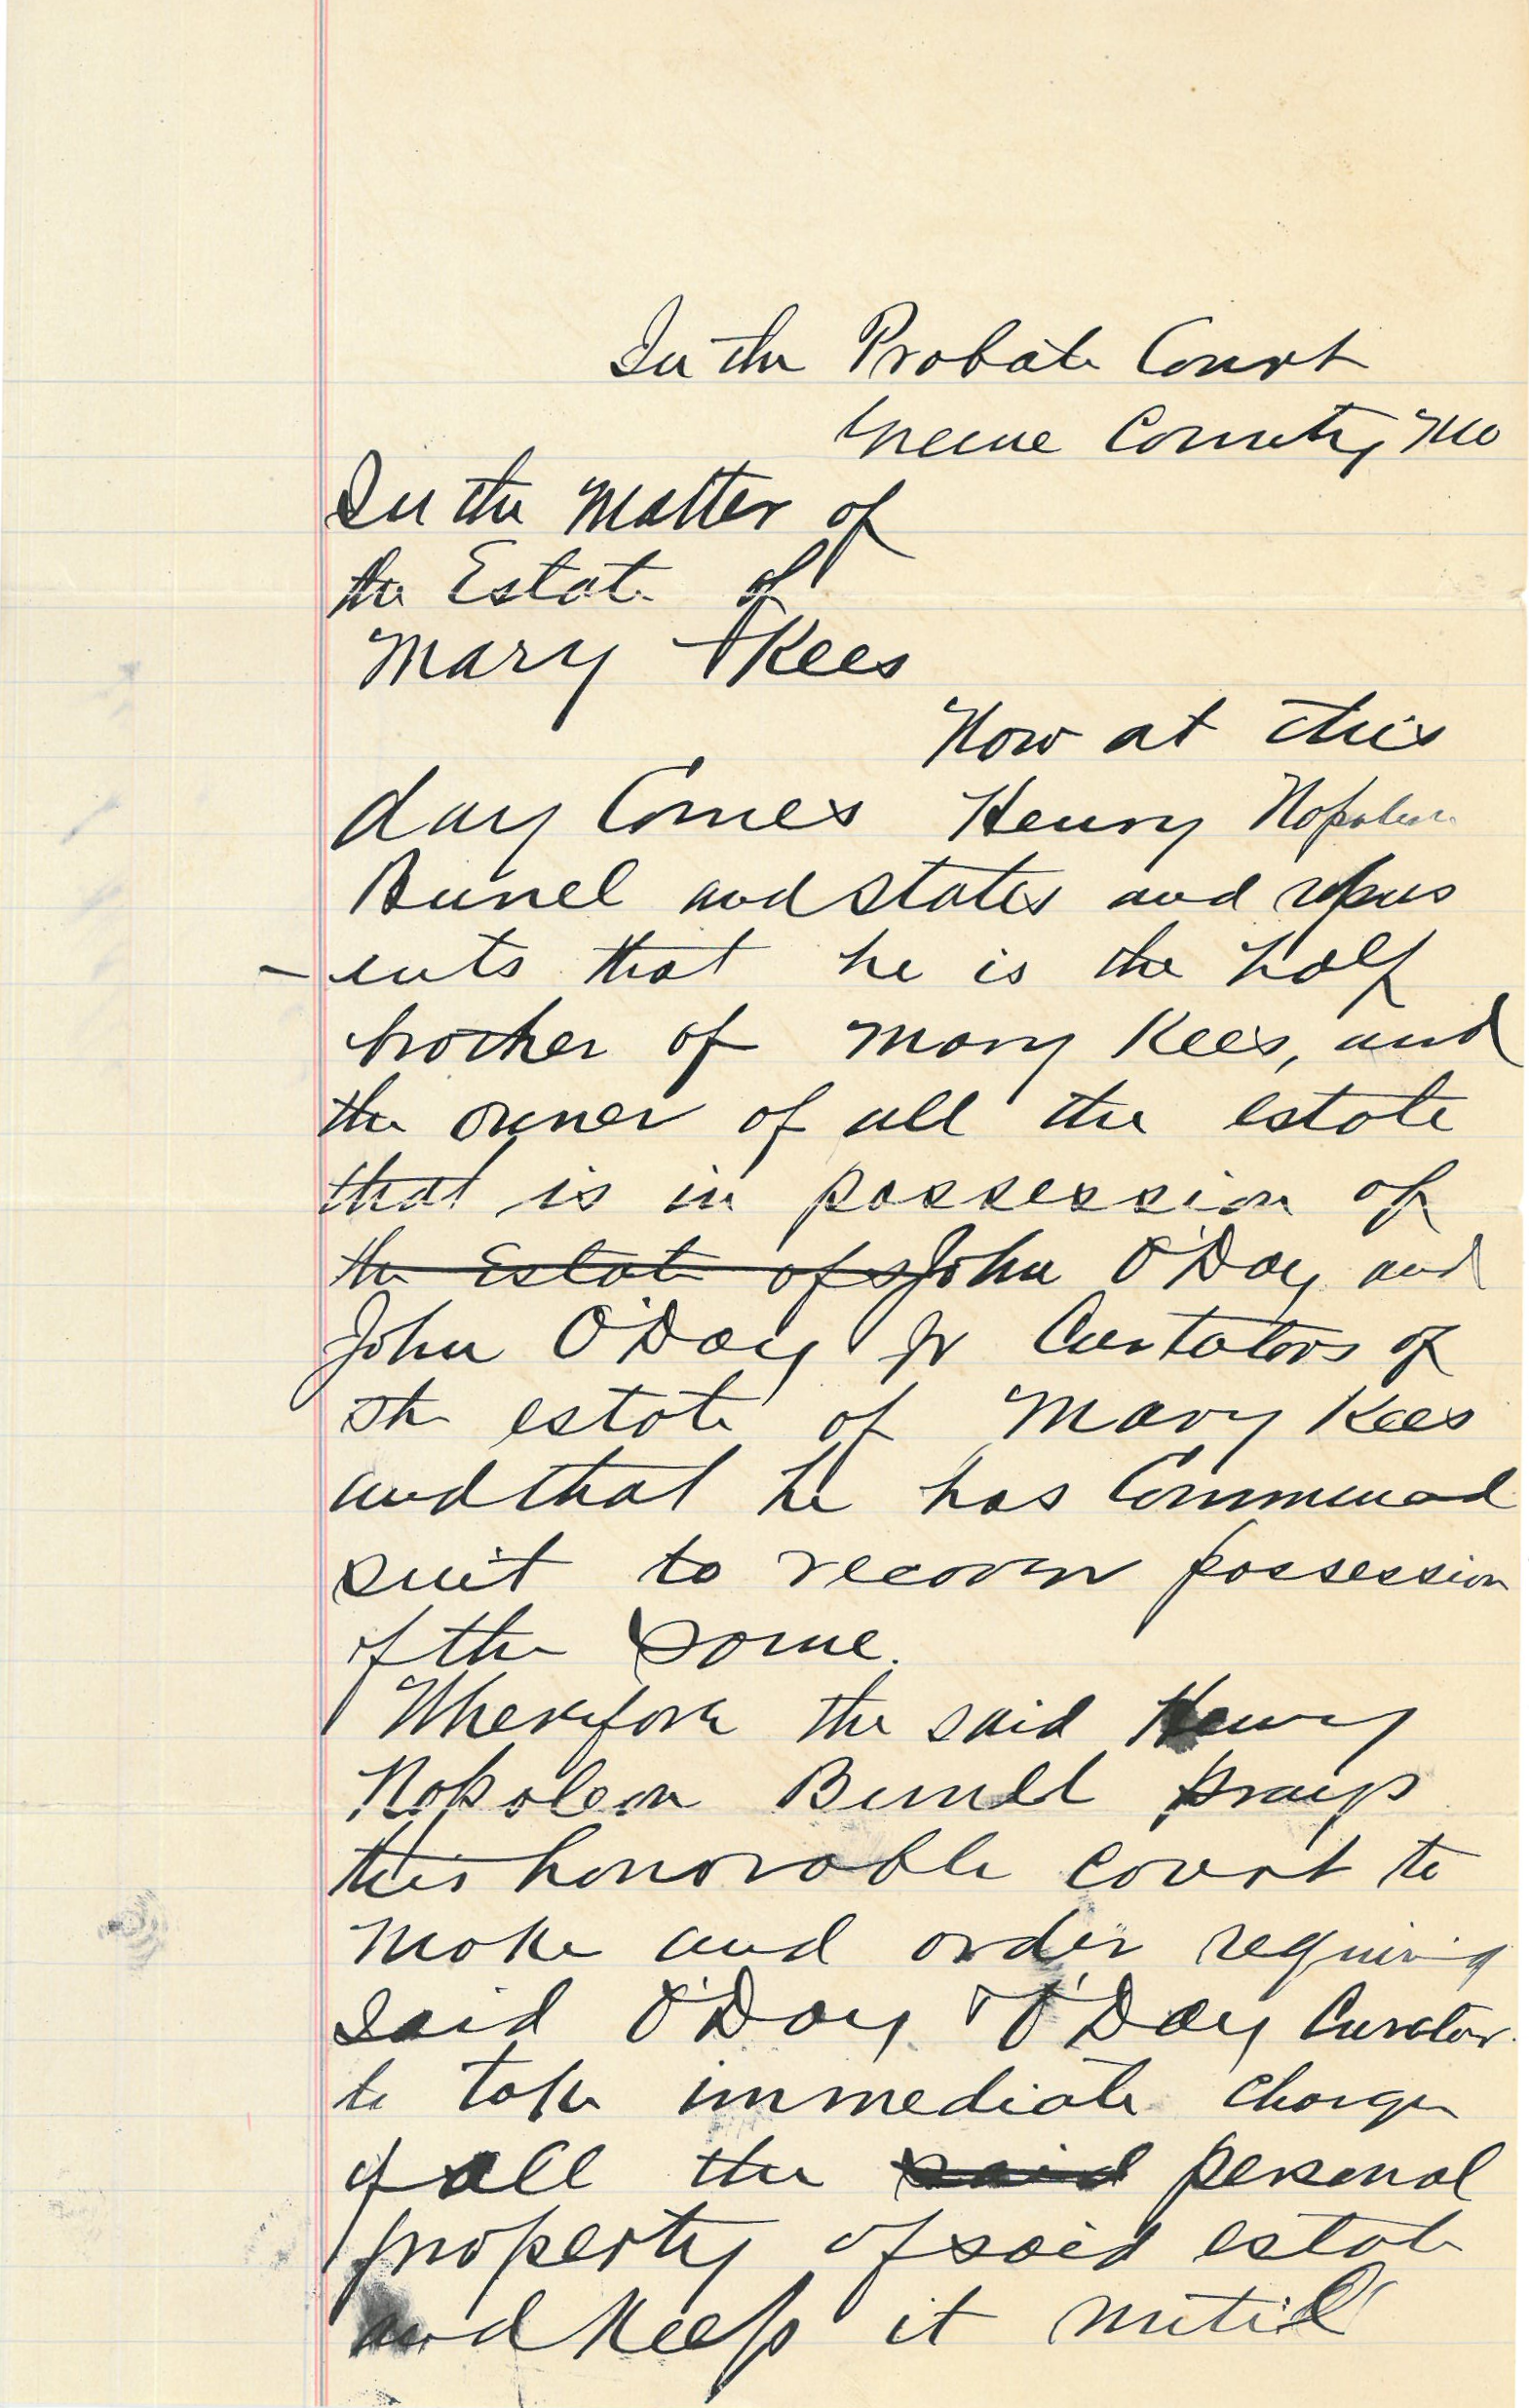 In the Probate Court
Greene County, Mo
In the Matter of
the Estate of
Mary Kees
Now at this
day Comes Henry Napoleon
Bunel and states and repres
-ents that he is the half
brother of Mary Kees, and
the owner of all the estate
that is in possession of
the Estate of John O'Day and
John O'Day Jr Curtators of
the estate of Mary Kees
and that he has Commenced
suit to recover possession
of the same.
Wherefore the said Henry
Napoleon Bunell prays
this honorable court to
make and order requiring
said O'Day & O'Day Curator
to take immediate charge
of all the said personal
property of said estate
and keep it until